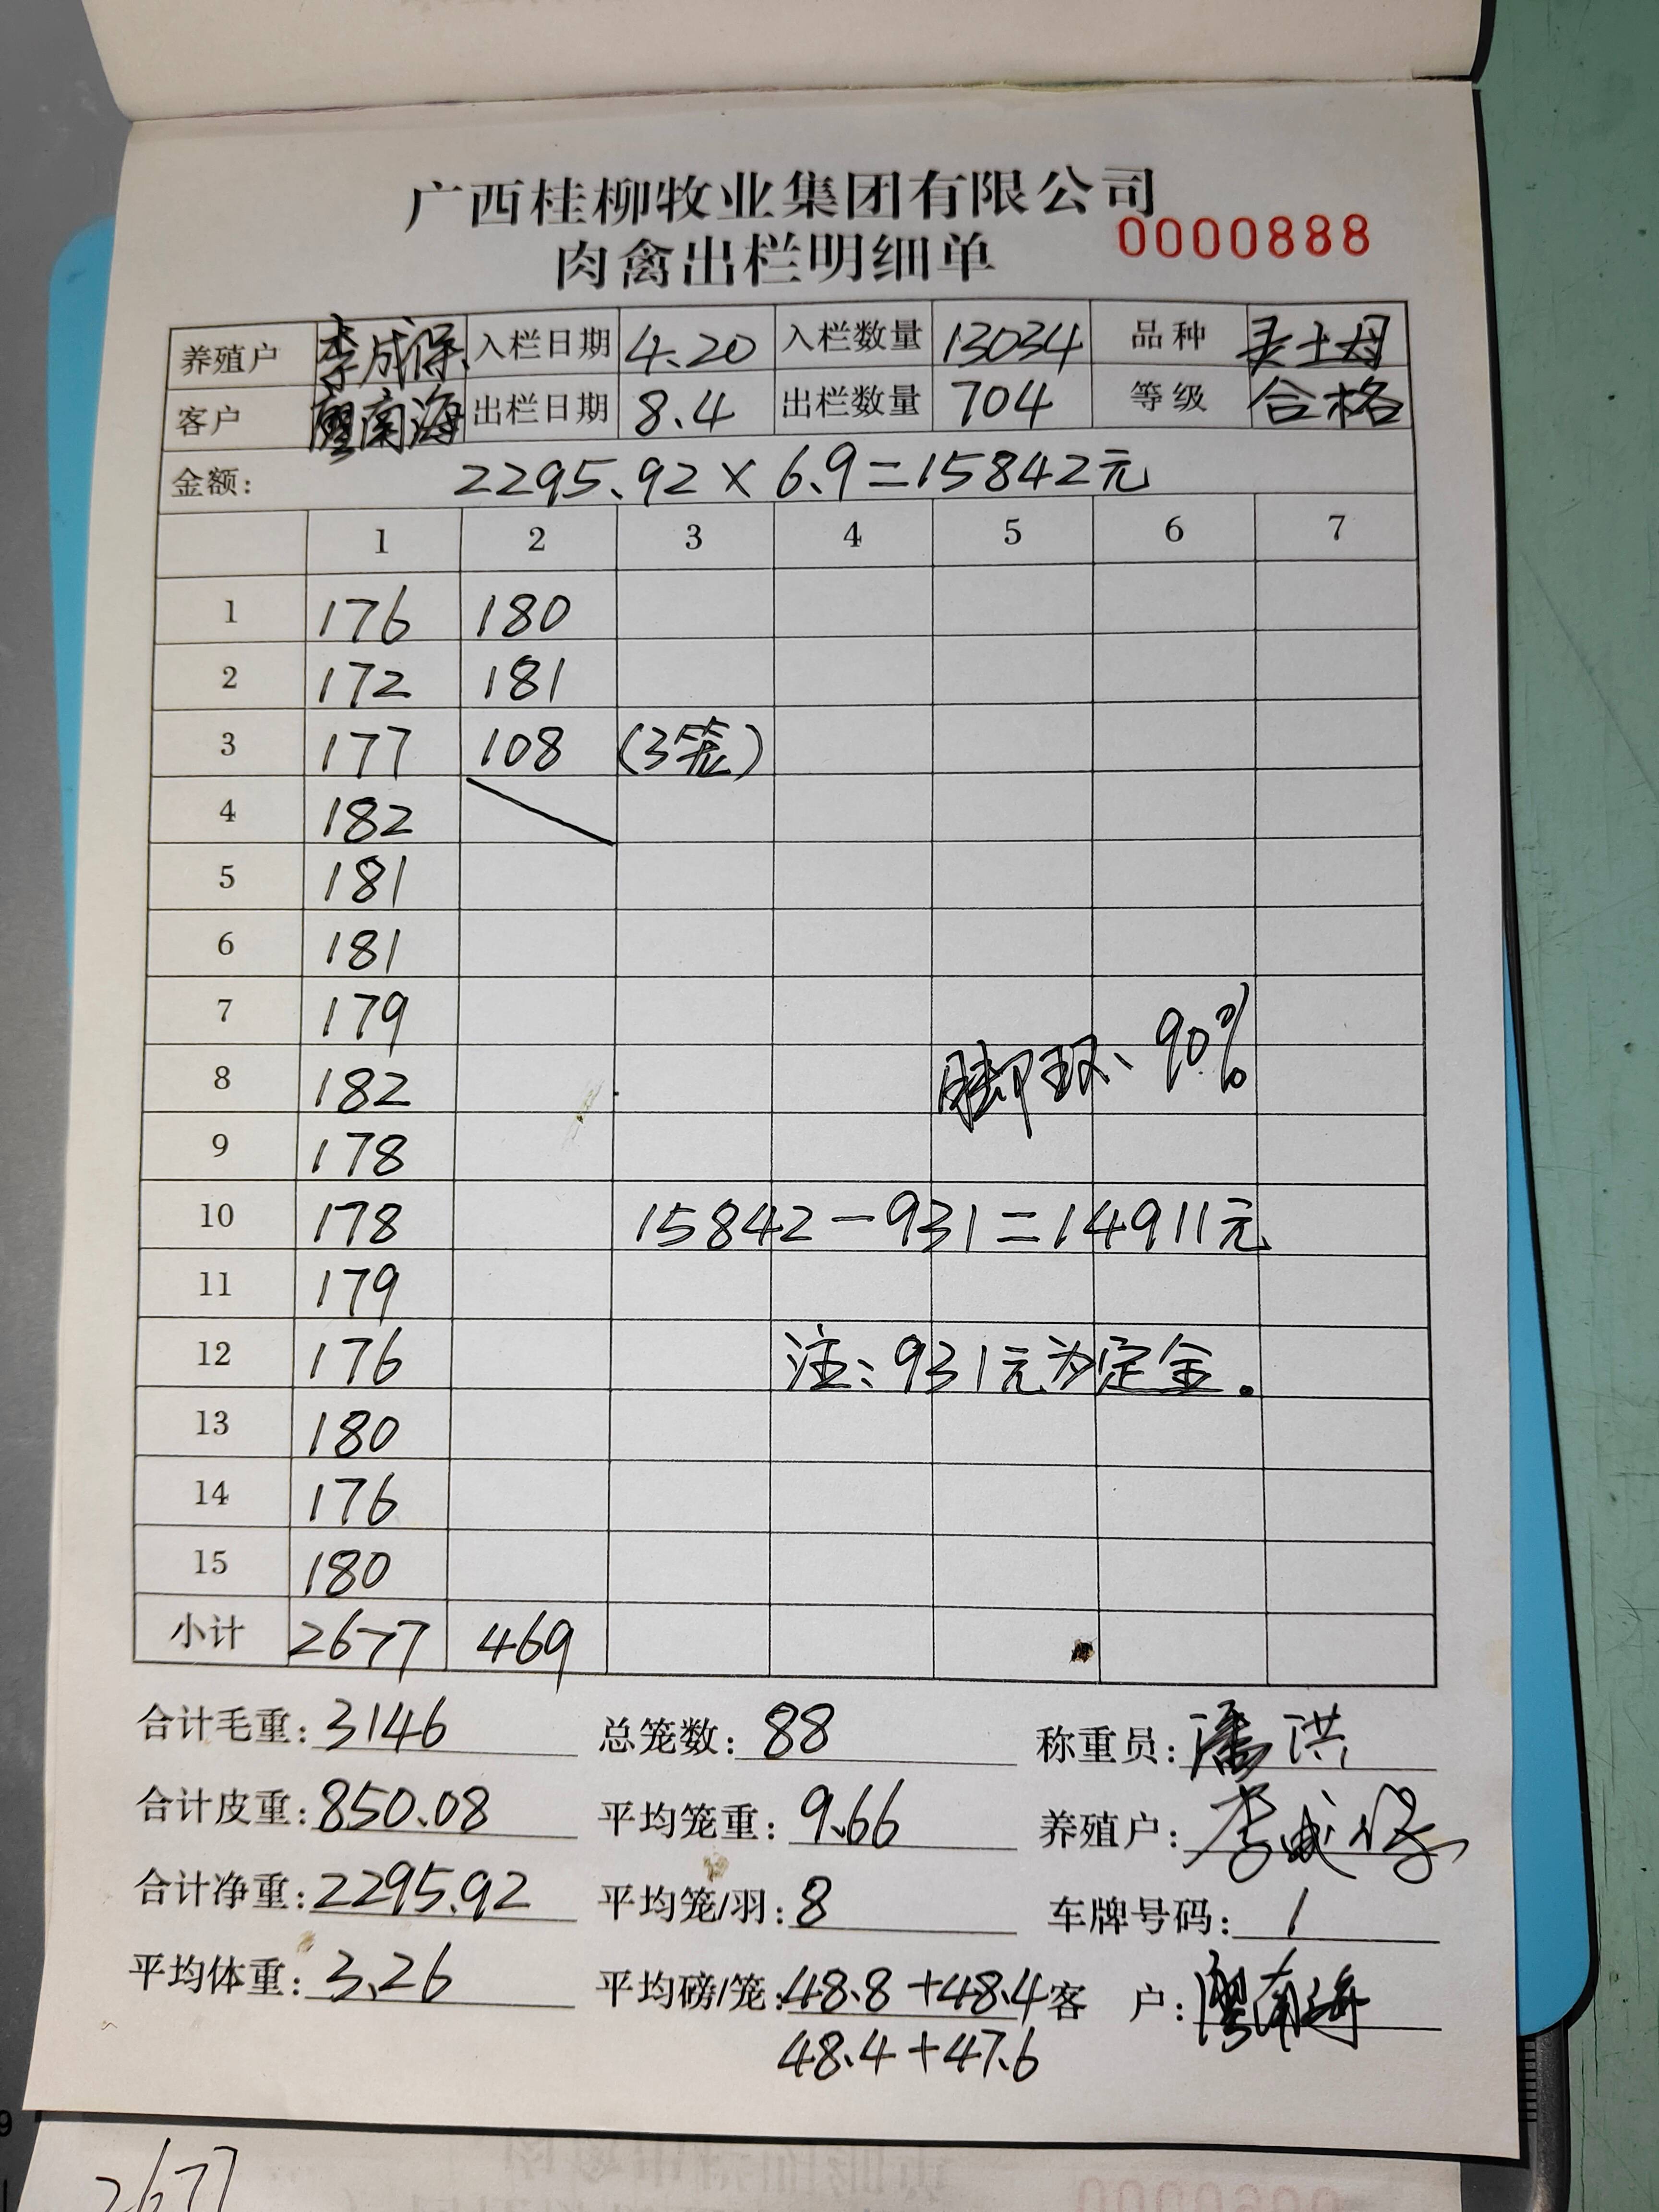 广西桂柳牧业集团有限公司
肉禽出栏明细单 0000888
养殖户 李成保 入栏日期 4.20 入栏数量 13034 品种 土母
客户 廖南海 出栏日期 8.4 出栏数量 704 等级 合格
金额: 2295.92×6.9=15842元
1 2 3 4 5 6 7
1 176 180
2 172 181
3 177 108 (3笼)
4 182
5 181
6 181
7 179
8 182 脚环、90%
9 178
10 178 15842-931=14911元
11 179
12 176 注:931元为定金。
13 180
14 176
15 180
小计 2677 469
合计毛重:3146 总笼数:88 称重员:潘洪
合计皮重:850.08 平均笼重:9.66 养殖户:李成保
合计净重:2295.92 平均笼/羽:8 车牌号码:1
平均体重:3.26 平均磅/笼:48.8+48.4 客 户:廖南海
48.4+47.6
2677